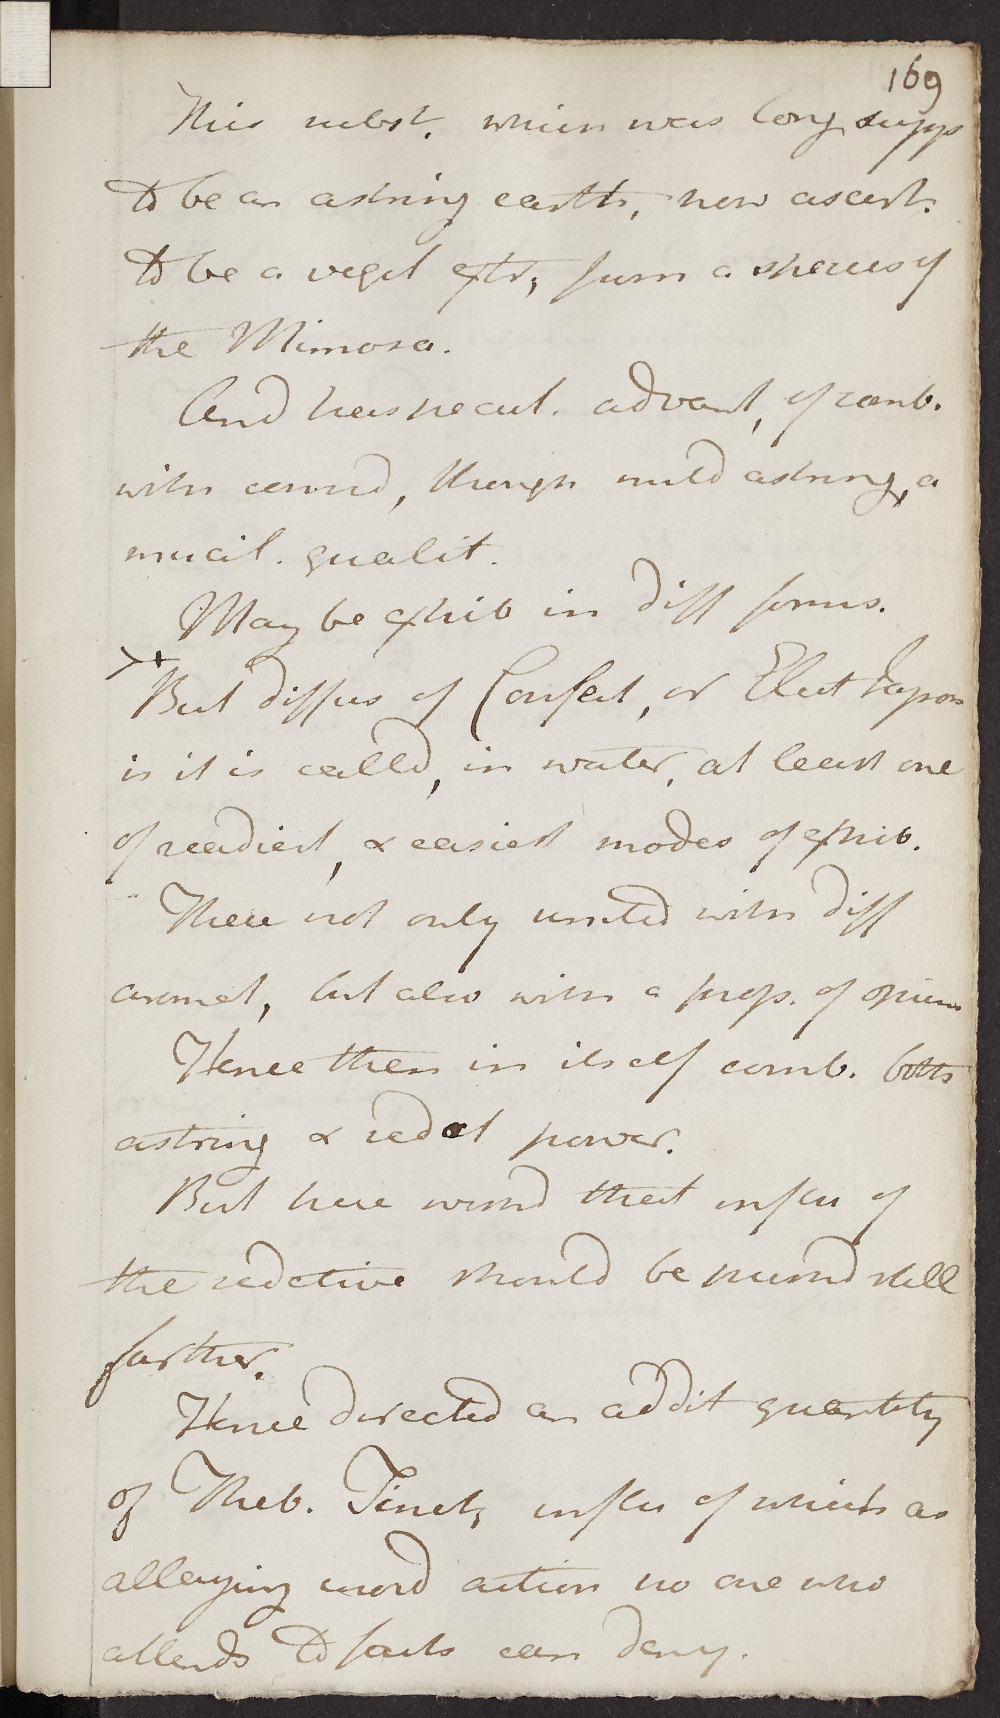 169
This subst. which was long supps
to be an astring earth, now ascert.
to be a veget extr, from a species of
the Mimosa.
And has pecul. advant, of comb.
with consid, though mild astring, a
mucil. qualit.
May be exhib in diff forms.
But diffus of Confect, or Elect Japon
as it is calld, in water, at least one
of readiest, & easiest modes of exhib.
Here not only united with diff
aromat, but also with a prop. of opium
Hence then in itself comb. both
astring & sedat power.
But here wishd that influ of
the sedative should be pushd still
farther.
Hence directed an addit quantity
of Theb. Tinct, influ of which as
allaying inord action no one who
attends to facts can deny.